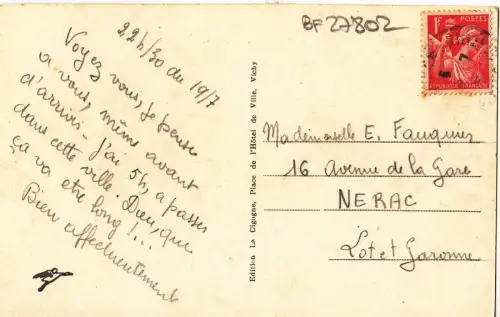 BF 27802
22h/30 du 19/7
Voyez vous, je pense
a vous, même avant
d'arriver - J'ai 5h, a passer
dans cette ville. Dieu, que
ça va etre long !...
Bien affectueusement
Edition La Cigogne, Place de l'Hôtel de Ville, Vichy
1F POSTES
REPUBLIQUE FRANÇAISE
Mademoiselle E. Fauquier
16 Avenue de la Gare
NERAC
Lot et Garonne